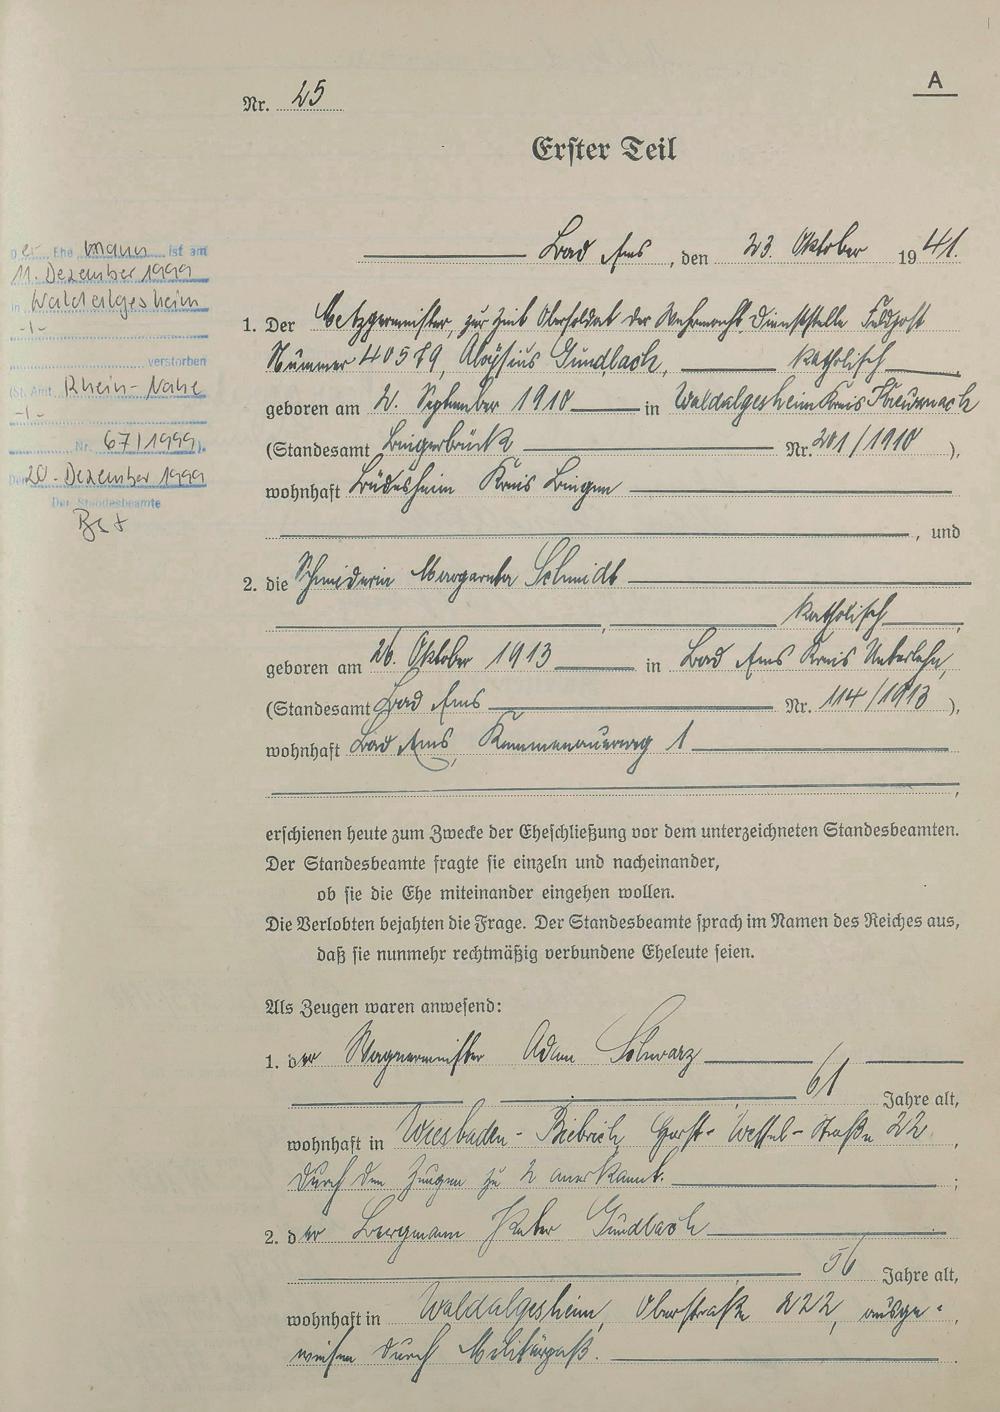 A
Nr. 25
Erster Teil
Bad Ems, den 23. Oktober 1941.
1. Der Metzgermeister, zur Zeit Obersoldat der Wehrmacht Dienststelle Feldpost
Nummer 40579, Aloysius Gundlach, katholisch
geboren am 2. September 1910 in Waldalgesheim Kreis Kreuznach
(Standesamt Bingerbrück Nr. 201/1910),
wohnhaft Büdesheim Kreis Bingen
, und
2. die Schneiderin Margareta Schmidt
, katholisch,
geboren am 26. Oktober 1913 in Bad Ems Kreis Unterlahn,
(Standesamt Bad Ems Nr. 114/1913),
wohnhaft Bad Ems, Kemmenauerweg 1
,
erschienen heute zum Zwecke der Eheschließung vor dem unterzeichneten Standesbeamten.
Der Standesbeamte fragte sie einzeln und nacheinander,
ob sie die Ehe miteinander eingehen wollen.
Die Verlobten bejahten die Frage. Der Standesbeamte sprach im Namen des Reiches aus,
daß sie nunmehr rechtmäßig verbundene Eheleute seien.
Als Zeugen waren anwesend:
1. der Wagnermeister Adam Schwarz
, 61 Jahre alt,
wohnhaft in Wiesbaden-Biebrich, Horst-Wessel-Straße 22,
durch den Zeugen zu 2 anerkannt. ;
2. der Bergmann Peter Gundlach
56 Jahre alt,
wohnhaft in Waldalgesheim, Oberstraße 222, ausge-
wiesen durch Militärpaß.
Der Ehemann ist am
11. Dezember 1999
in Waldalgesheim
-/-
verstorben
(St. Amt Rhein-Nahe
-/-
Nr. 67/1999).
Den 20. Dezember 1999
Der Standesbeamte